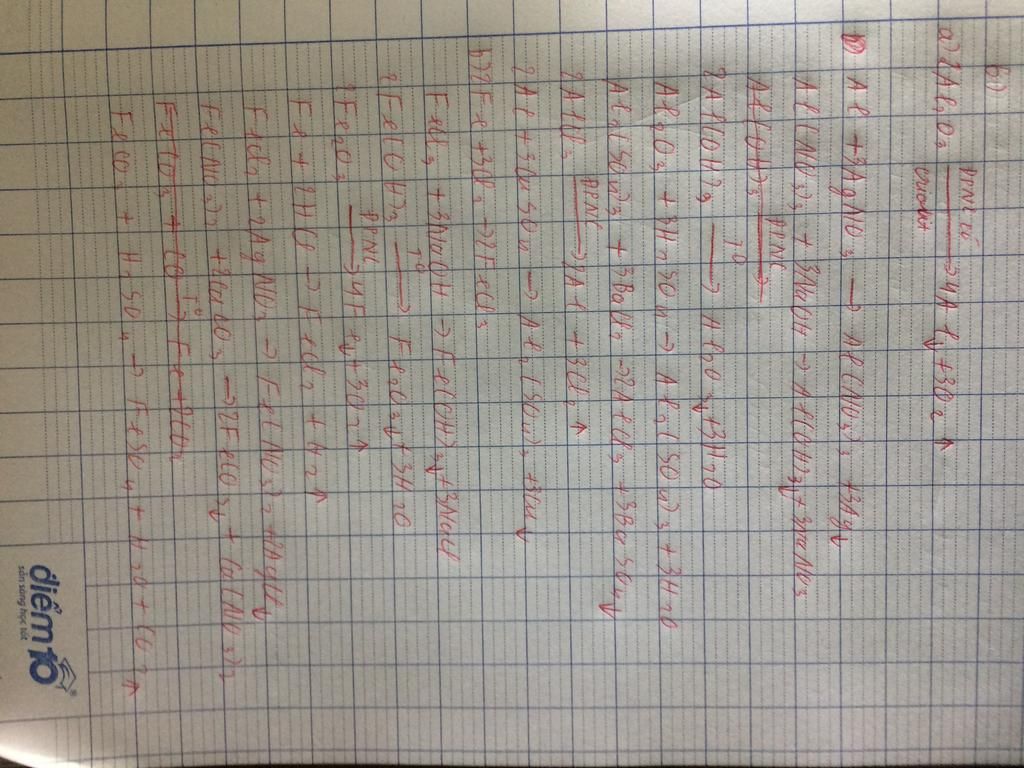 6)
a) 2Al2O3 ĐPNC có criolit → 4Al↓ + 3O2↑
Al + 3AgNO3 → Al(NO3)3 + 3Ag↓
Al(NO3)3 + 3NaOH → Al(OH)3↓ + 3NaNO3
Al(OH)3 ĐPNC →
2Al(OH)3 T0 → Al2O3↓ + 3H2O
Al2O3 + 3H2SO4 → Al2(SO4)3 + 3H2O
Al2(SO4)3 + 3BaCl2 → 2AlCl3 + 3BaSO4↓
2AlCl3 ĐPNC → 2Al + 3Cl2↑
2Al + 3CuSO4 → Al2(SO4)3 + 3Cu↓
b) 2Fe + 3Cl2 → 2FeCl3
FeCl3 + 3NaOH → Fe(OH)3↓ + 3NaCl
2Fe(OH)3 T0 → Fe2O3↓ + 3H2O
2Fe2O3 ĐPNC → 4Fe↓ + 3O2↑
Fe + 2HCl → FeCl2 + H2↑
FeCl2 + 2AgNO3 → Fe(NO3)2 + 2AgCl↓
Fe(NO3)2 + CaCO3 → FeCO3↓ + Ca(NO3)2
FeCO3 + H2SO4 → FeSO4 + H2O + CO2↑
điểm 10
sẵn sàng học tốt